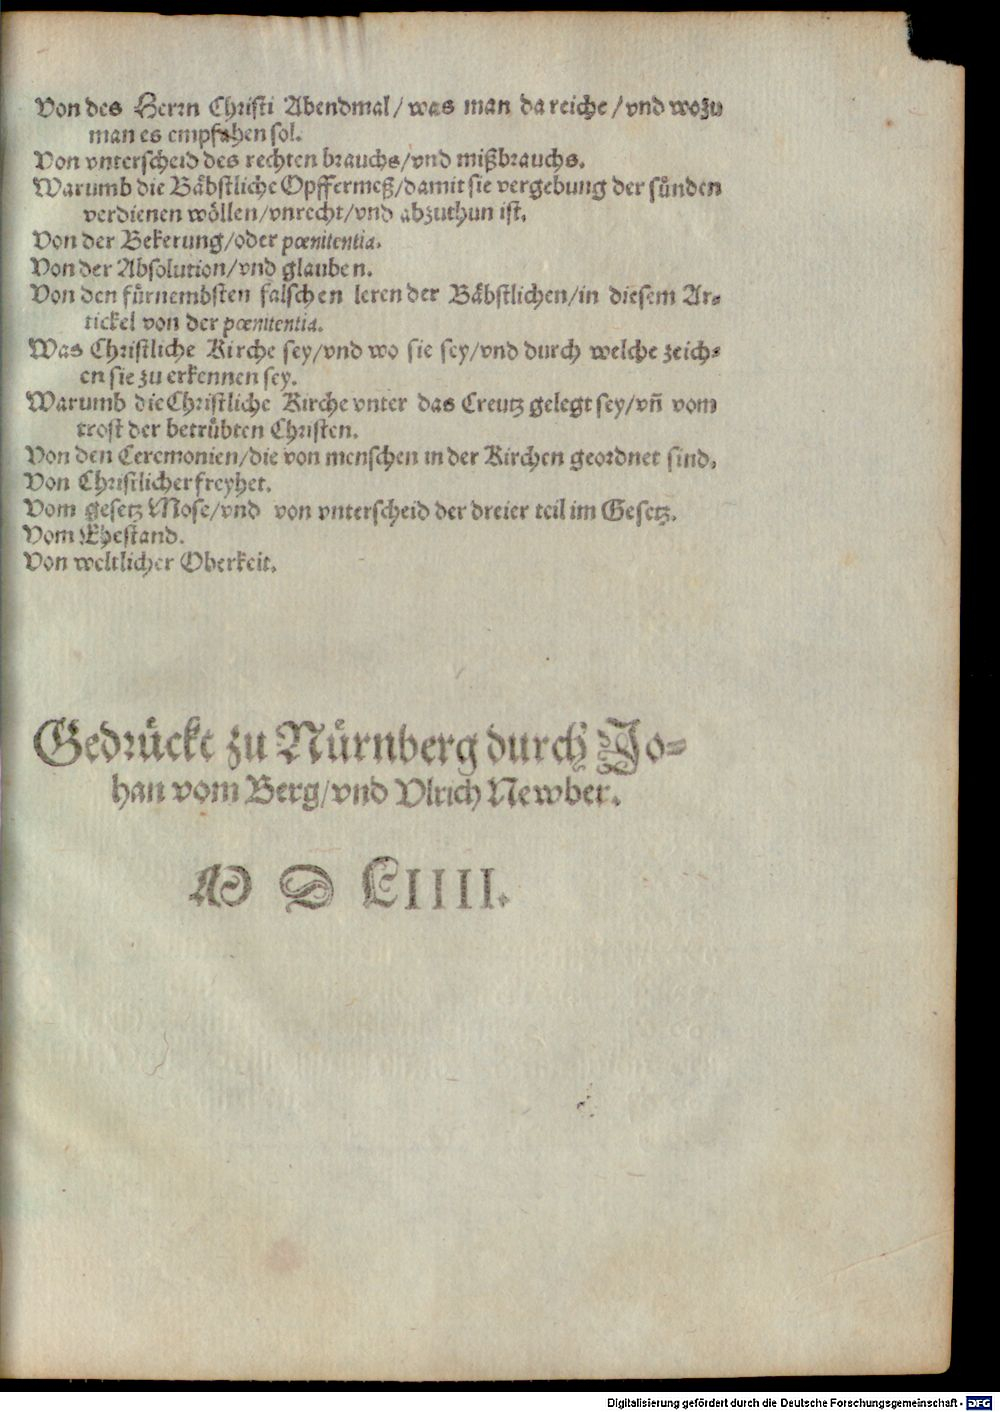 Von des Herrn Christi Abendmal/ was man da reiche/ vnd wozu
man es empfahen sol.
Von vnterscheid des rechten brauchs/vnd mißbrauchs.
Warumb die Bäbstliche Opffermeß/damit sie vergebung der sünden
verdienen wöllen/vnrecht/vnd abzuthun ist.
Von der Bekerung/oder pœnitentia.
Von der Absolution/vnd glauben.
Von den fürnembsten falschen leren der Bäbstlichen/in diesem Ar-
tickel von der pœnitentia.
Was Christliche Kirche sey/vnd wo sie sey/vnd durch welche zeich-
en sie zu erkennen sey.
Warumb die Christliche Kirche vnter das Creutz gelegt sey/vñ vom
trost der betrübten Christen.
Von den Ceremonien/die von menschen in der Kirchen geordnet sind.
Von Christlicher freyhet.
Vom gesetz Mose/vnd von vnterscheid der dreier teil im Gesetz.
Vom Ehestand.
Von weltlicher Oberkeit.
Gedrückt zu Nürnberg durch Jo-
han vom Berg/vnd Vlrich Newber.
M D LIIII.
Digitalisierung gefördert durch die Deutsche Forschungsgemeinschaft - DFG